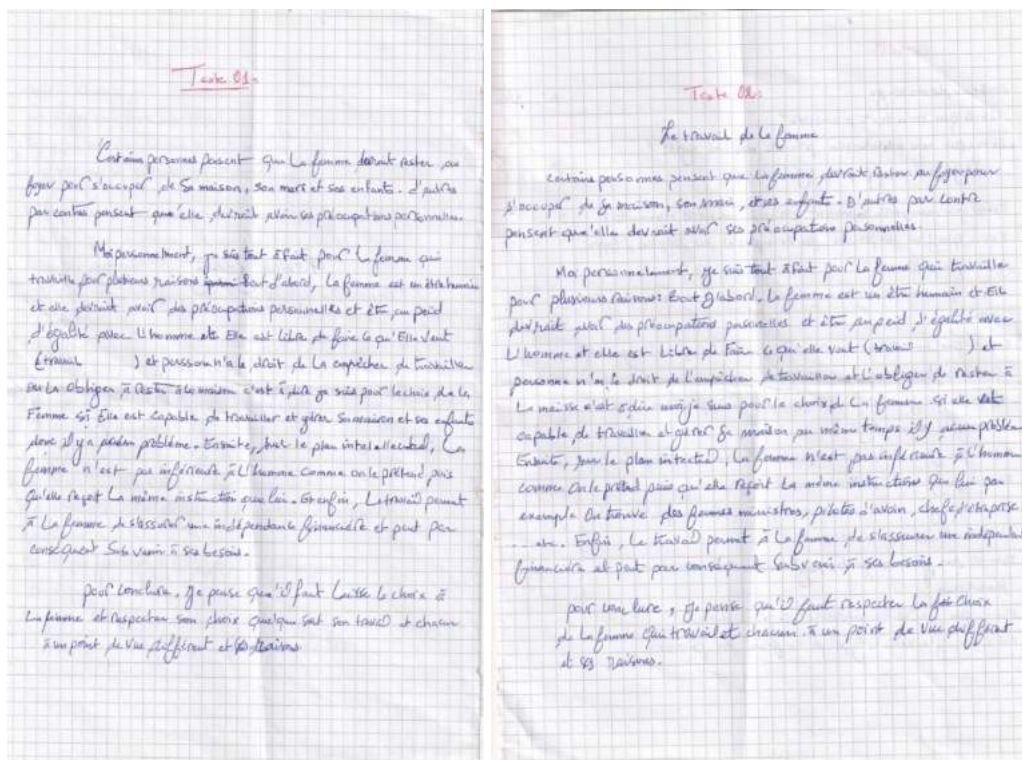 Texte 01:
Certains personnes pensent que La femme devrait rester au
foyer pour s'occuper de Sa maison, son mari et ses enfants. d'autres
par contre pensent que'elle devrait avoir ses préocupations personnelles.
Moi personnelment, je suis tout à fait pour la femme qui
travaille pour plusieurs raisons tout d'abord, La femme est un être humain
et elle devrait avoir des préocupations personnelles et être au peid
d'égalité avec L'homme Elle est Libre de faire ce qu'Elle veut
(travail ) et persson n'a le droit de La empêcher de travailler
ou La Obliger à rester à la maison c'est à dire je suis pour le choix de la
Femme si Elle est capable de travailler et gérer Sa maison et ses enfants
donc il y a problème. Ensuite, sur le plan intellectuel, La
femme n'est pas inférieure à L'homme comme on le prétend puis
qu'elle reçoit La même instruction que lui. Et enfin, Le travail permet
à La femme de s'assurer une indépendance financière et peut par
conséquent Subvenir à ses besoins.
pour conclure, je pense qu'il faut Laisse le choix à
La femme et respecter son choix quelque soit son travail et chacun
à un point de vue différent et ses raisons
Texte 02:
Le travail de la femme
certains personnes pensent que la femme devrait rester au foyer pour
s'occuper de Sa maison, son mari, et ses enfants. D'autres par contre
pensent que'elle devrait avoir ses préocupations pesonnelles.
Moi personnelement, je suis tout à fait pour La femme qui travaille
pour plusieurs raisons: tout d'abord. La femme est un être humain et Elle
devrait avoir des préocupations pesonnelles et être au peid d'égalité avec
L'homme et elle est Libre de Faire ce qu'elle veut (travail ) et
personne n'a le droit de l'empêcher de travailler et L'obliger de rester à
La c'est à dire moi je suis pour le choix de La femme si elle
capable de travailler et gérer Sa maison au même temps il y aucun problème
Ensuite, sur le plan , La femme n'est pas inférieure à L'homme
comme On le prétend puis qu'elle reçoit La même instruction que lui par
exemple On trouve des femmes ministres, pilotes d'avoin, chefs d'etreprise
.... etc. Enfin, Le travail permet à La femme de s'assurer une
financière et peut par conséquent Subvenir à ses besoins.
pour conclure, je pense qu'il faut respecter La choix
de La femme qui travail et chacun à un point de vue différent
et ses raisons.